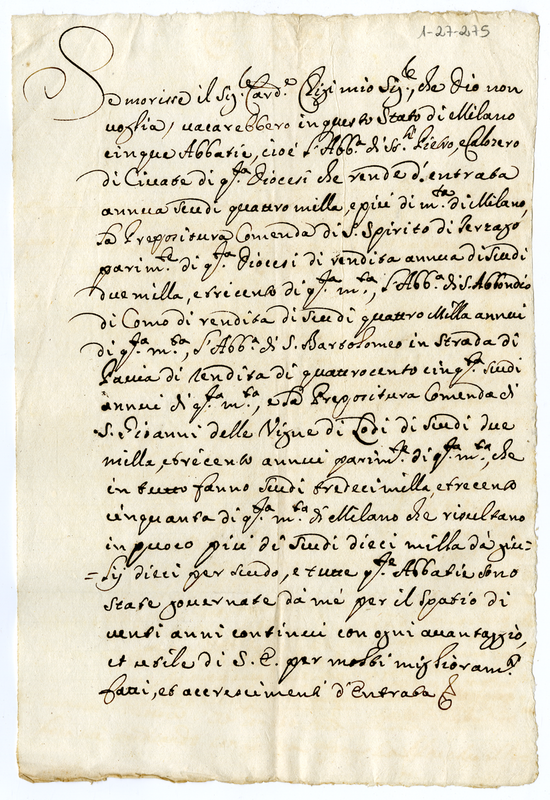 1-27-275
Se morisse il Sig.r Card.le Ghigi mio Sig.re, che Dio non
voglia, vacarebbero in questo Stato di Milano
cinque Abbatie, cioé l'Abb.a di S.ti Pietro, e Calocero
di Civate di q.sta Diocesi che rende d'entrata
annua scudi quattro milla, e piú di m.ta di Milano,
la Prepositura Comenda di S. Spirito di
parim.te di q.sta Diocesi di rendita annua di Scudi
due milla, e trecento di q.sta m.ta, l'Abb.a di S. Abbondio
di Como di rendita di Scudi quattro Milla annui
di q.sta m.ta, l'Abb.a di S. Bartolomeo in Strada di
Pavia di rendita di quattrocento cinq.ta scudi
annui di q.sta m.ta, e la Prepositura Comenda di
S. Gioanni delle Vigne di Lodi di Scudi due
milla, e trecento annui parim.te di q.sta m.ta, che
in tutto fanno scudi tredeci milla, e trecento
cinquanta di q.sta m.ta di Milano che risultano
in puoco piú di Scudi dieci milla dá giu=
=lij dieci per scudo, e tutte q.ste Abbatie sono
state governate dá mé per il spatio di
venti anni continui con ogni avantaggio,
et utile di S. E. per molti miglioram.ti
fatti, et accrescimenti d'Entrata